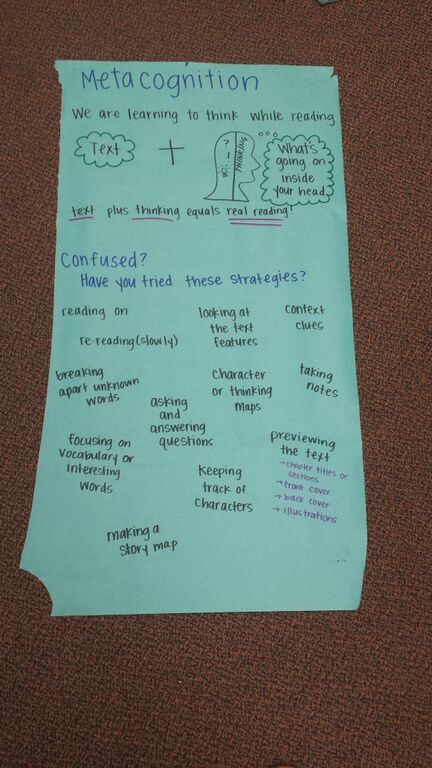 Metacognition
We are learning to think while reading
Text
+
?
!
THINKING
What's
going on
inside
your head
text plus thinking equals real reading!
Confused?
Have you tried these strategies?
reading on
re-reading (slowly)
looking at
the text
features
context
clues
breaking
apart unknown
words
asking
and
answering
questions
Character
or thinking
maps
taking
notes
focusing on
vocabulary or
interesting
words
Keeping
track of
characters
previewing
the text
→ chapter titles or
sections
→ front cover
→ back cover
→ illustrations
making a
story map